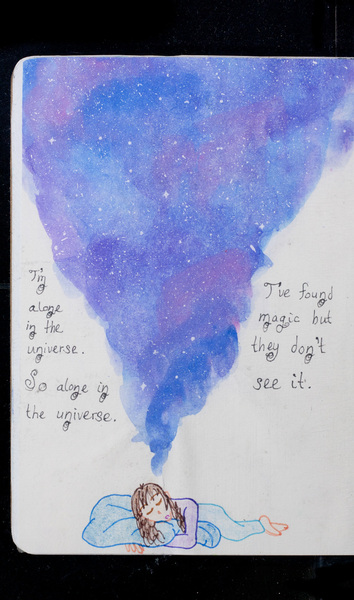 I'm
alone
in the
universe.
So alone in
the universe.
I've found
magic but
they don't
see it.